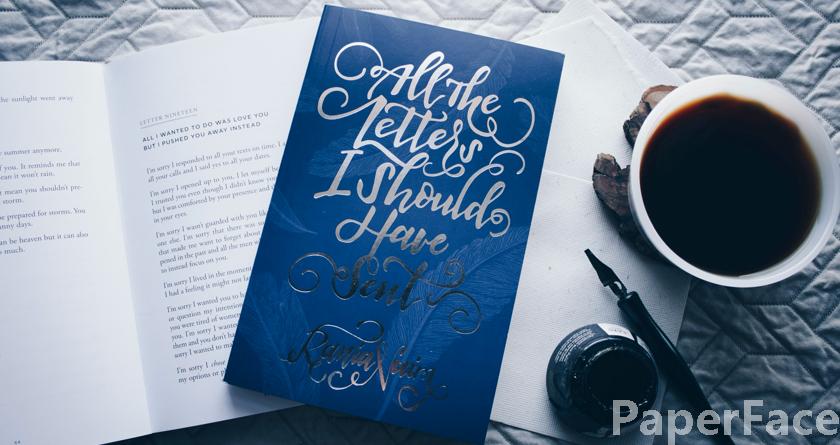 he sunlight went away
summer anymore.
f you. It reminds me that
ean it won't rain.
t mean you shouldn't pre-
storm.
be prepared for storms. You
nny days.
an be heaven but it can also
s much.
64
LETTER NINETEEN
ALL I WANTED TO DO WAS LOVE YOU
BUT I PUSHED YOU AWAY INSTEAD
I'm sorry I responded to all your texts on time. I
all your calls and I said yes to all your dates.
I'm sorry I opened up to you, I let myself
I trusted you even though I didn't know
but I was comforted by your presence and
in your eyes.
I'm sorry I wasn't guarded with you like
one else. I'm sorry that there was
that made me want to forget about
pened in the past and all the men
to instead focus on you.
I'm sorry I lived in the moment
I had a feeling it might not
I'm sorry I wanted you to
or question my intention
you were tired of women
them and you don't
sorry I wanted to
I'm sorry I
my options or
All the
Letters
I Should
Have
Sent
Rania Naim
PaperFace